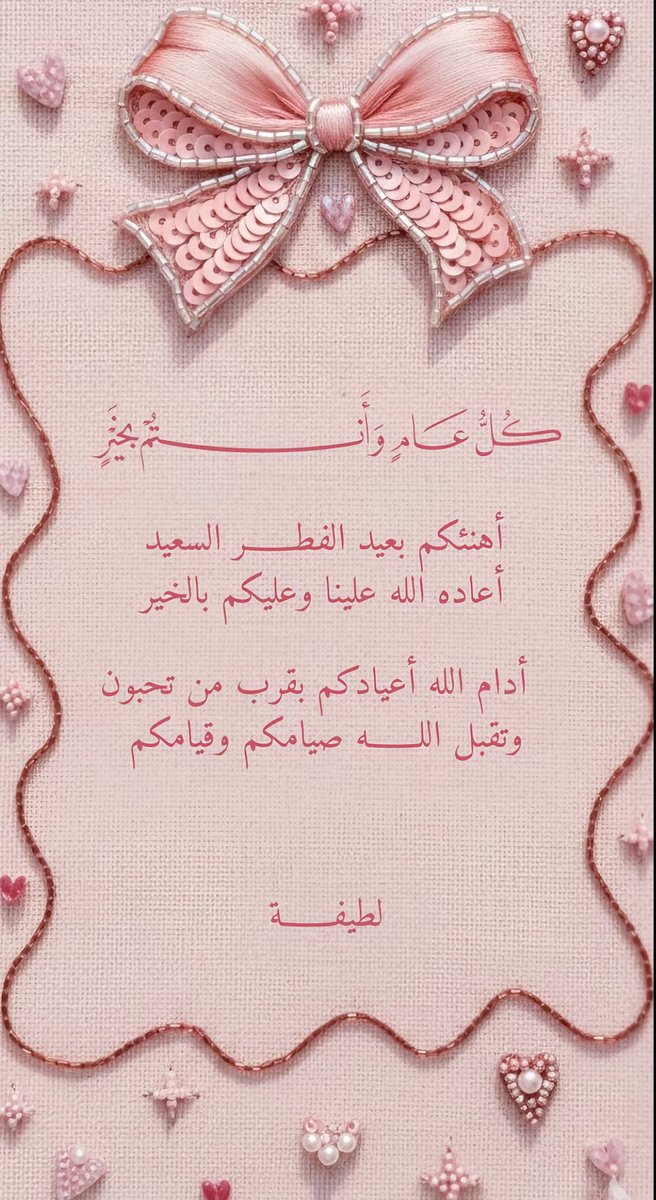 كُلُّ عَـــامٍ وَأَنـــــــتُمْ بِخَيْرٍ
أهنئكم بعيد الفطـــــر السعيد
أعاده الله علينا وعليكم بالخير
أدام الله أعيادكم بقرب من تحبون
وتقبل اللـــــه صيامكم وقيامكم
لطيفـــــة